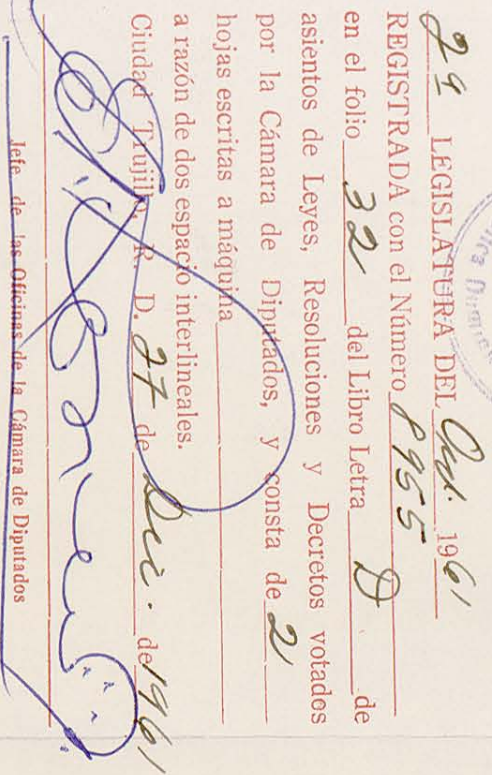 2ª LEGISLATURA DEL Ord. 1961
REGISTRADA con el Número 8955
en el folio 32 del Libro Letra D de
asientos de Leyes, Resoluciones y Decretos votados
por la Cámara de Diputados, y consta de 2
hojas escritas a máquina
a razón de dos espacio interlineales.
Ciudad Trujillo, R. D. 27 de Dic. de 1961
Jefe de las Oficinas de la Cámara de Diputados